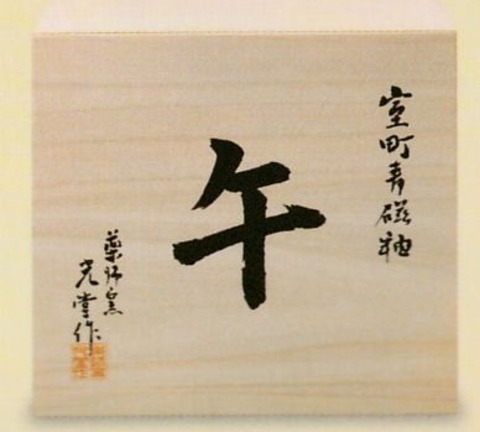 室町青磁釉
午
薬師窯
光堂作